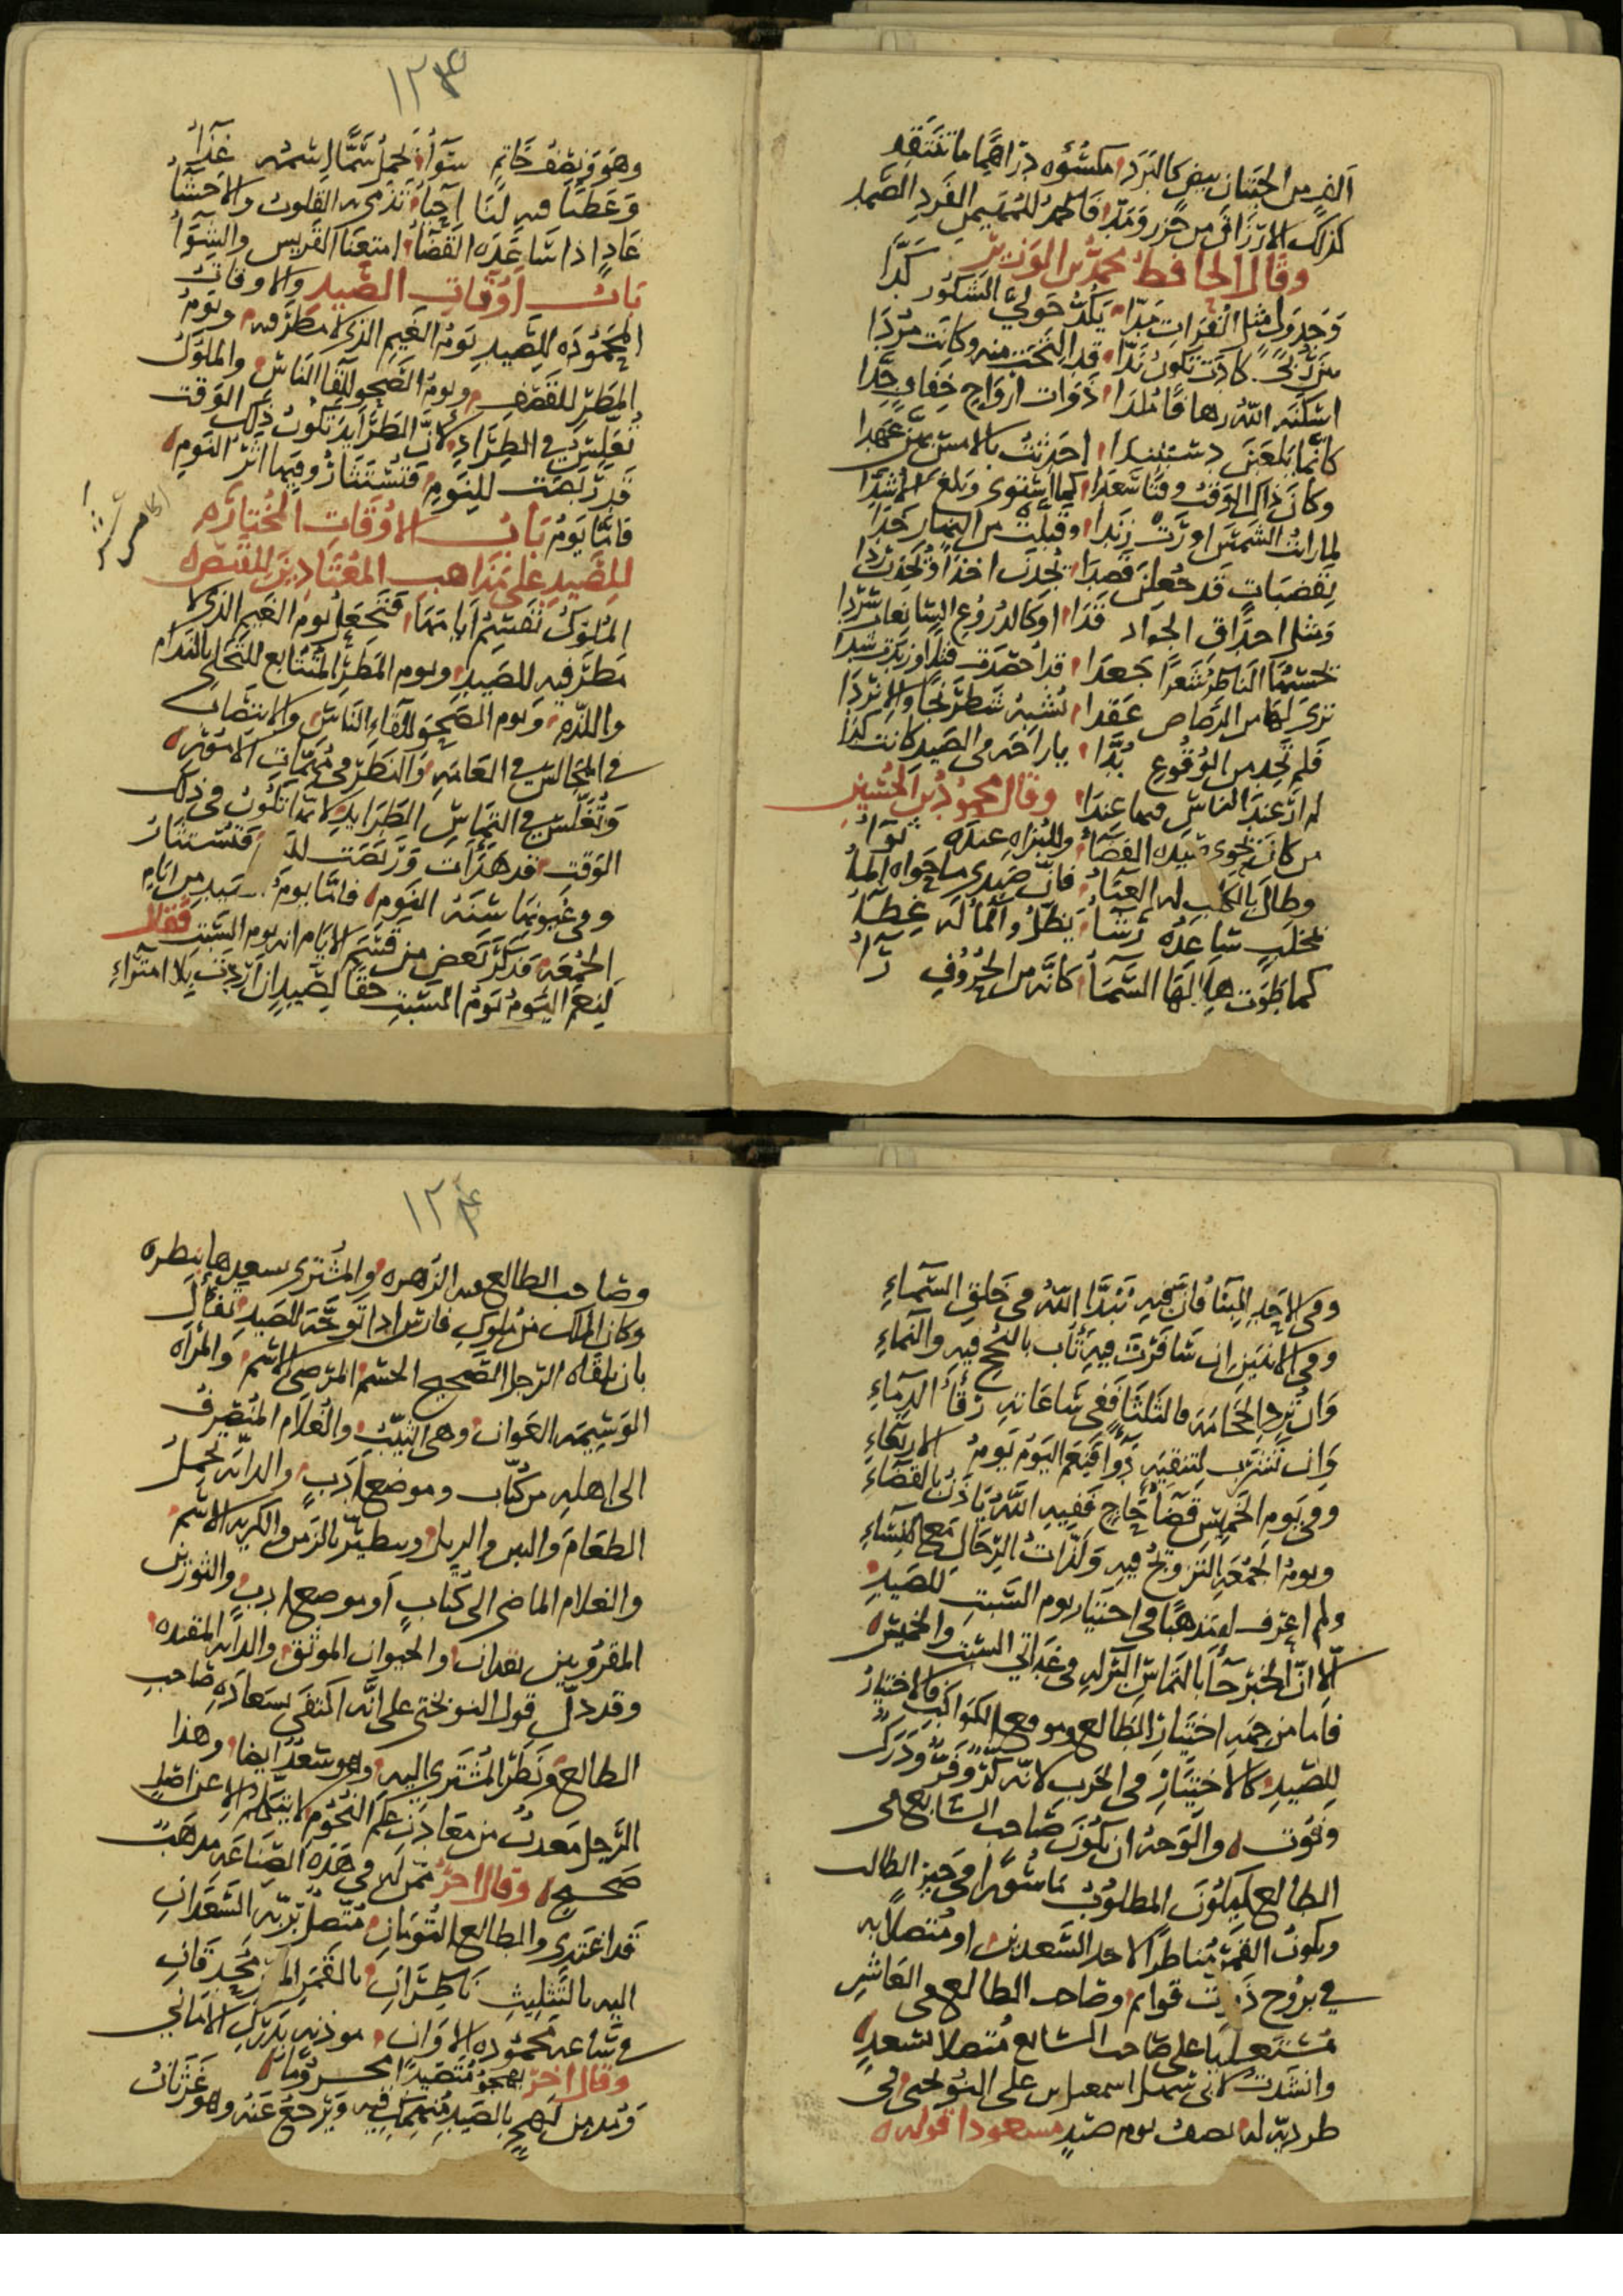 الذمن الجبنان بيض كالبرد مكسوه دراهما ما تنتقد
كذلك الارزاق من حزر ومد فالحمد للمهيمن الفرد الصمد
وقال الحافظ محمد بن الوزير
وجدول مثل الفرات مدا يكد حولي السكور كدا
كادت تكون ندا قد انتخبت منه وكانت مردا
اسكنه الله رهافا ملدا ذوات ارواح خفاف جدا
كانما يلعبن دستبندا احدثت بالامس بهن عهدا
وكان ذاك الوقت وقتا سعدا كما استوى وبلغ الاشدا
لما رات الشمس اورت زندا وقبلت من النهار خدا
بقضبات قد جعلن قصدا تجذب اخذا
ومثل احداق الجراد قدا او كالدروع السابغات سردا
تحسبها الناظر شعرا جعدا قد احصدت فتلا وزيدت شدا
ترى لها من الرصاص عقدا تشبه شطرنجا والا نردا
فلم تجد من الوقوع بدا يا راحة في الصيد كانت كدا
لم ار عند الناس فيها عندا وقال محمود بن الحسين
من كان تحوي صيده الفضاء وللبزاة عنده ثواء
وطال بالكلب له العناء فان صيدي ما حواه الماء
بمخلب ساعده رشاء يظل والماء له غطاء
كما طوت هلالها السماء كانه من الحروف راء
١٢٣
وهو ونصف خاتم سواء يحمل سما اسمه غذاء
وعطبا فيه لنا احياء تدمى به القلوب والاحشاء
عاد اذا ساعده القضاء امتعنا القريس والشواء
باب اوقات الصيد والاوقات
المحموده للصيد يوم الغيم الذي لا مطر فيه ويوم
المطر للقصف ويوم الصحو للقا الناس والملوك
تغلس في الطراد لان الطرايد تكون ذلك الوقت
قد ربضت للنوم فتستثار وفيها اثر النوم
فاما يوم باب الاوقات المختاره
للصيد على مذاهب المعتادين للقنص
الملوك تقسم ايامها فتجعل يوم الغيم الذي لا
مطر فيه للصيد ويوم المطر المتتابع للتخلي بالندام
واللذه ويوم الصحو للقاء الناس والانتصاب
في المجالس في العامه والنظر في مهمات الامور
وتغلس في التماس الطرايد لانها تكون في ذلك
الوقت قد هدات وربضت فتستثار
وفي عيونها سنه النوم فاما يوم الصيد من ايام
الجمعه فذكر بعض من قسم الايام انه يوم السبت فقال
لنعم اليوم يوم السبت حقا لصيد ان اردت بلا امتراء
وفي الاحد البنا فان فيه تبدا الله في خلق السماء
وفي الاثنين ان سافرت فيه تاب بالنجح فيه والنماء
وان ترد الحجامه فالثلثا ففي ساعاته رقاء الدماء
وان تشرب لتنقيه دوا فنعم اليوم يوم الاربعاء
وفي يوم الخميس قضاء حاج ففيه الله ياذن بالقضاء
ويوم الجمعه التزويج فيه ولذات الرجال مع النساء
ولم اعرف له مذهبا في اختيار يوم السبت للصيد
الا ان الخبر جآ بالتماس البركه في غداتي السبت والخميس
فاما من جهه اختيار الطالع وموقع الكواكب فالاختيار
للصيد كالاختيار في الحرب لانه كر وفر ودرك
وفوت والوجه ان يكون صاحب السابع في
الطالع ليكون المطلوب ماسورا في حيز الطالب
ويكون القمر مناظرا لاحد السعدين او متصلا به
في بروج ذوات قوائم وصاحب الطالع في العاشر
مستعليا على صاحب السابع متصلا بسعد
وانشدت لابي سهل اسمعيل بن علي النوبختي في
طرديه له يصف يوم صيد مسعودا قوله
١٢٤
وصاحب الطالع فيه الزهره والمشتري سعيدها ينظره
وكان الملك من ملوك فارس اذا توجه للصيد تفأل
بان يلقاه الرجل الصحيح الجسم المرضي الاسم والمراه
الوسيمه العوان وهي الثيب والغلام المنصرف
الى اهله من كتاب وموضع ادب والدابه تحمل
الطعام والتبن والزبل ويتطير بالزمن والكريه الاسم
والغلام الماضي الى كتاب او موضع ادب والثورين
المقرونين بفدان والحيوان الموثق والدابه المقيده
وقد دل قول النوبختي على انه اكتفى بسعاده صاحب
الطالع ونظر المشتري اليه وهو سعد ايضا وهذا
الرجل معدن من معادن علم النجوم لا يتكلم الا عن اصل
صحيح وقال اخر ممن له في هذه الصناعه مذهب
قد اغتدي والطالع التومان متصل بربه السعدان
اليه بالتثليث ناظران بالقمر
في ساعه محموده الاوان موذنه بدرك الاماني
وقال اخر يهجو متصيدا محروما
ومدمن لهج بالصيد منهمك فيه ويرجع عنه وهو غرثان